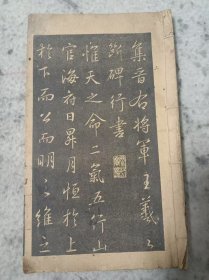 集晉右將軍王羲之
斷碑行書
惟天之命二氣五行山
官海府日昇月恒於上
於下而公而明〻維之